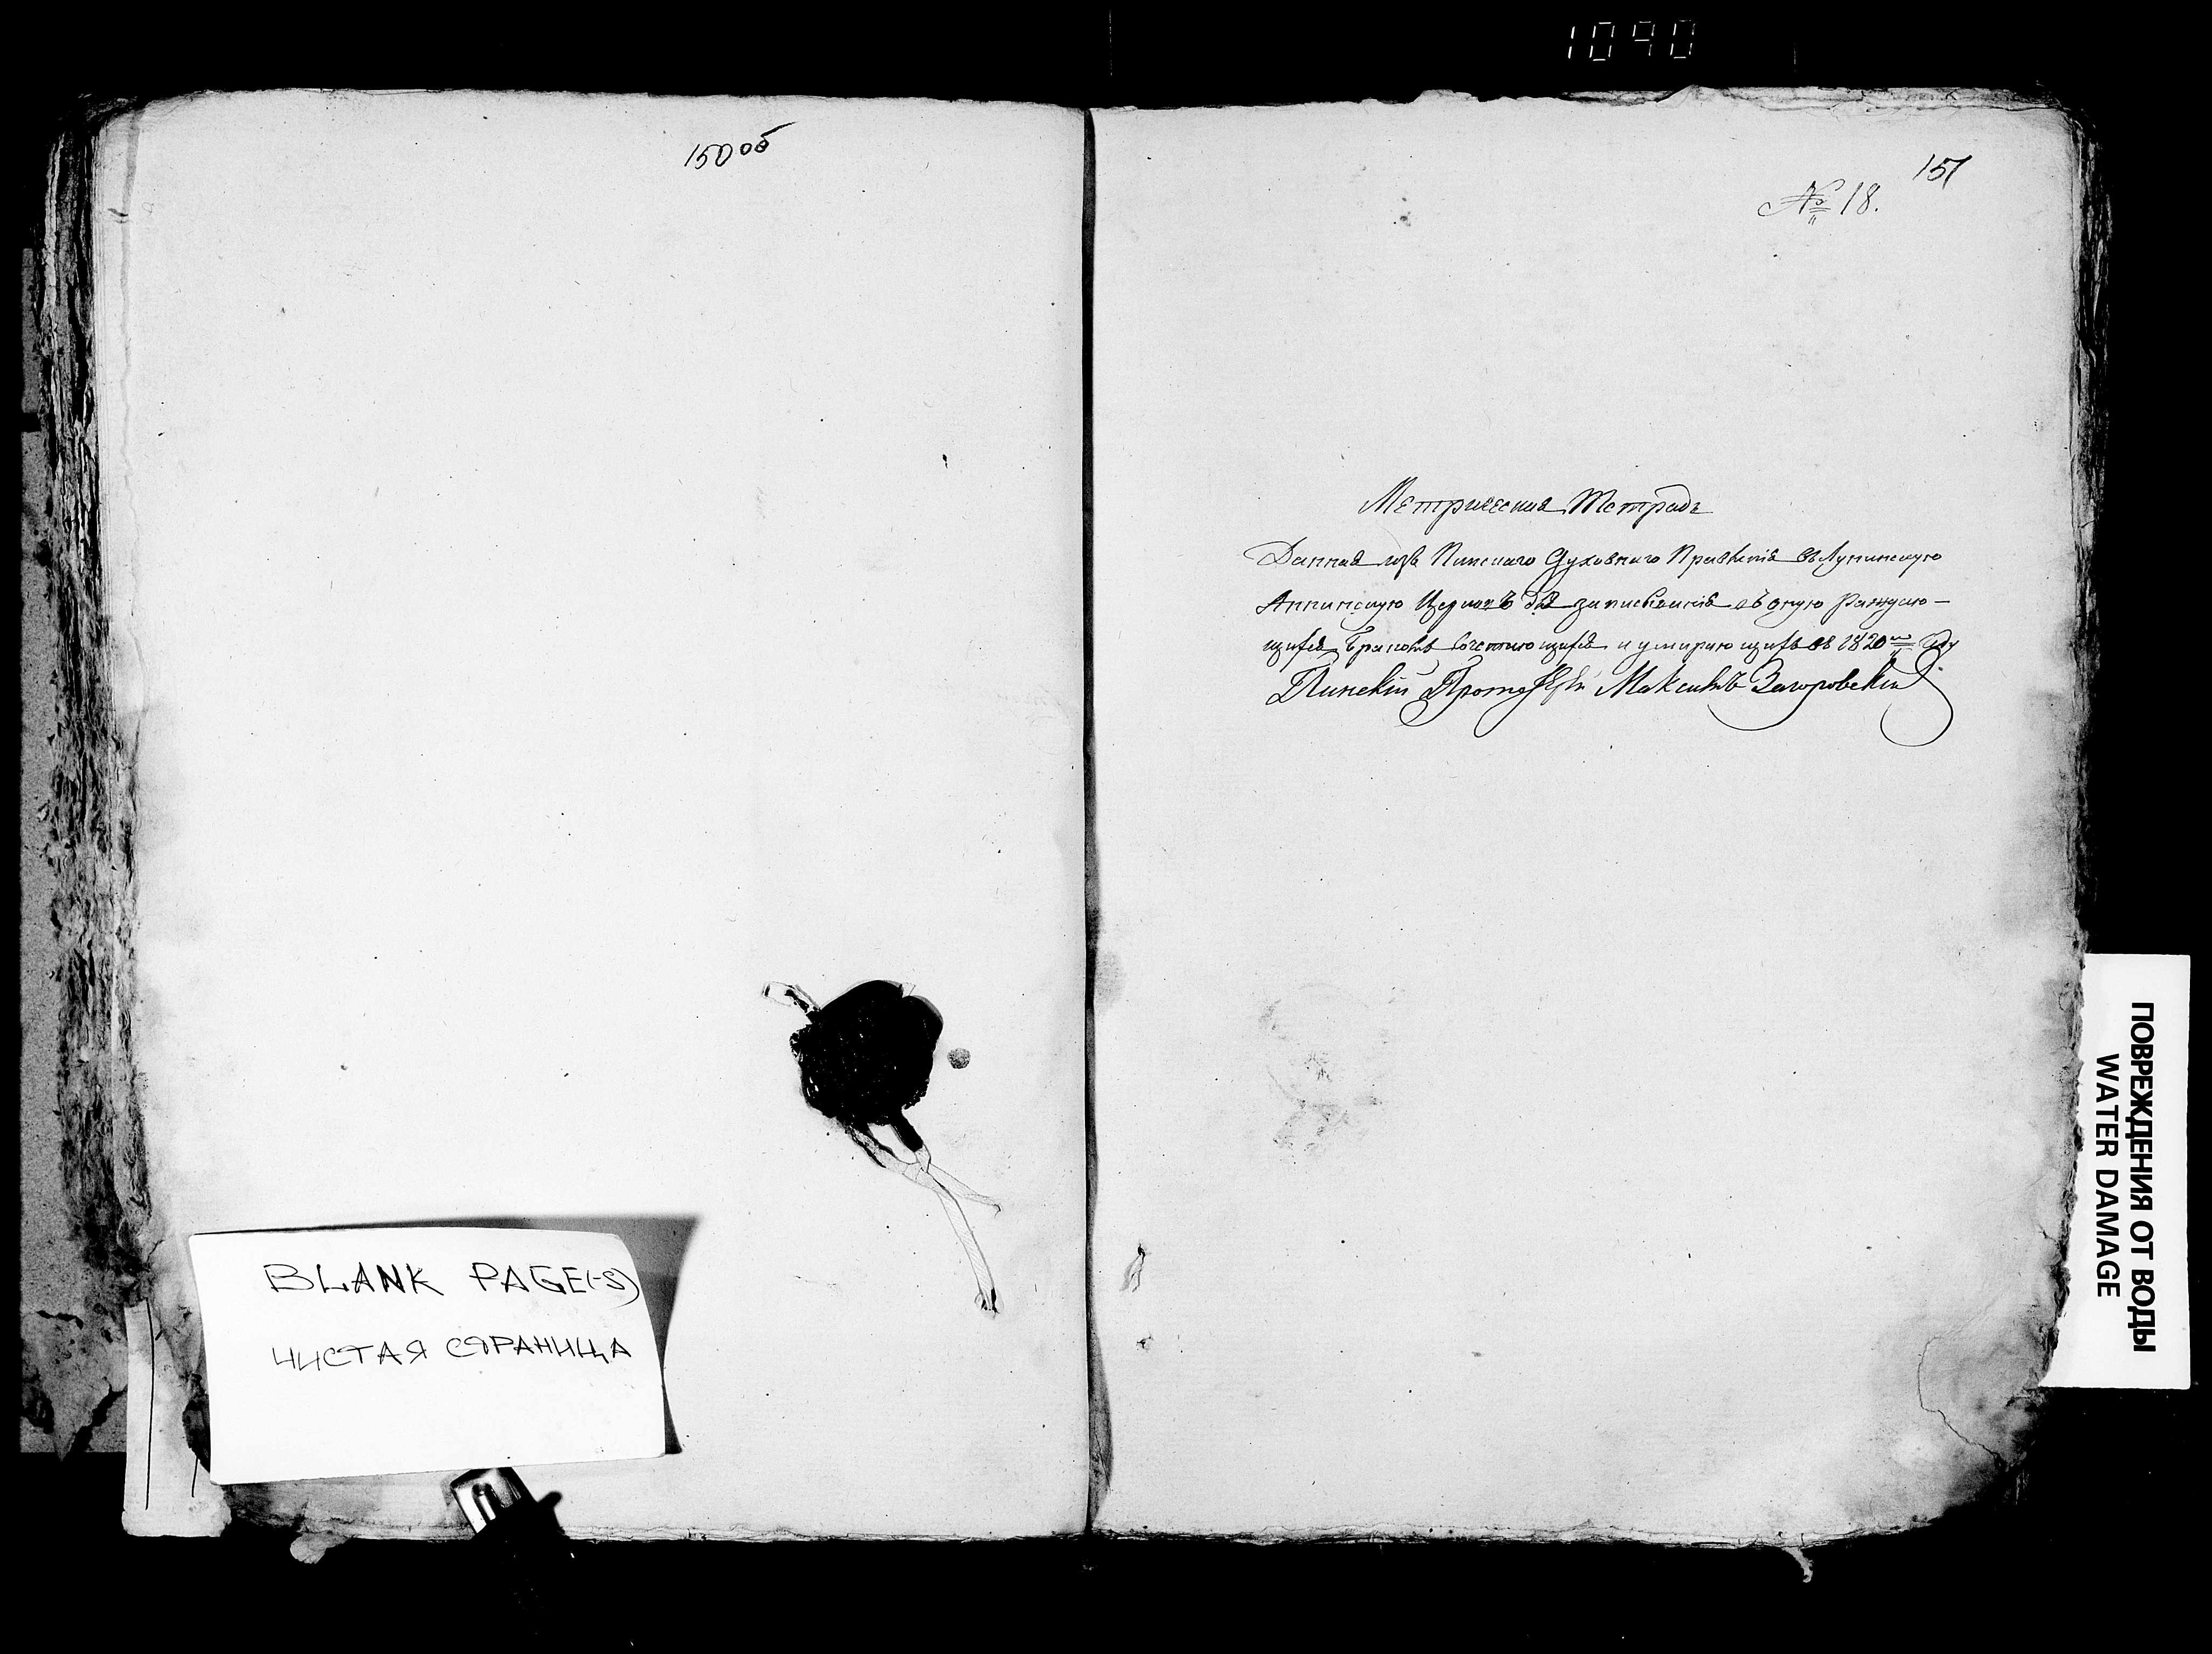 1090
150 об
151
№ 18.
Метрическая Тетрадь
Данная изъ Пинскаго Духовнаго Правленія въ Лунинскую
Аннинскую Церковь для записыванія въ оную Раждаю-
щихся, Бракомъ Сочетающихся и умирающихъ въ 1820мъ Году
Пинскій Протоіерей Максимъ Загоровскій
BLANK PAGE(-S)
ЧИСТАЯ СТРАНИЦА
ПОВРЕЖДЕНИЯ ОТ ВОДЫ
WATER DAMAGE